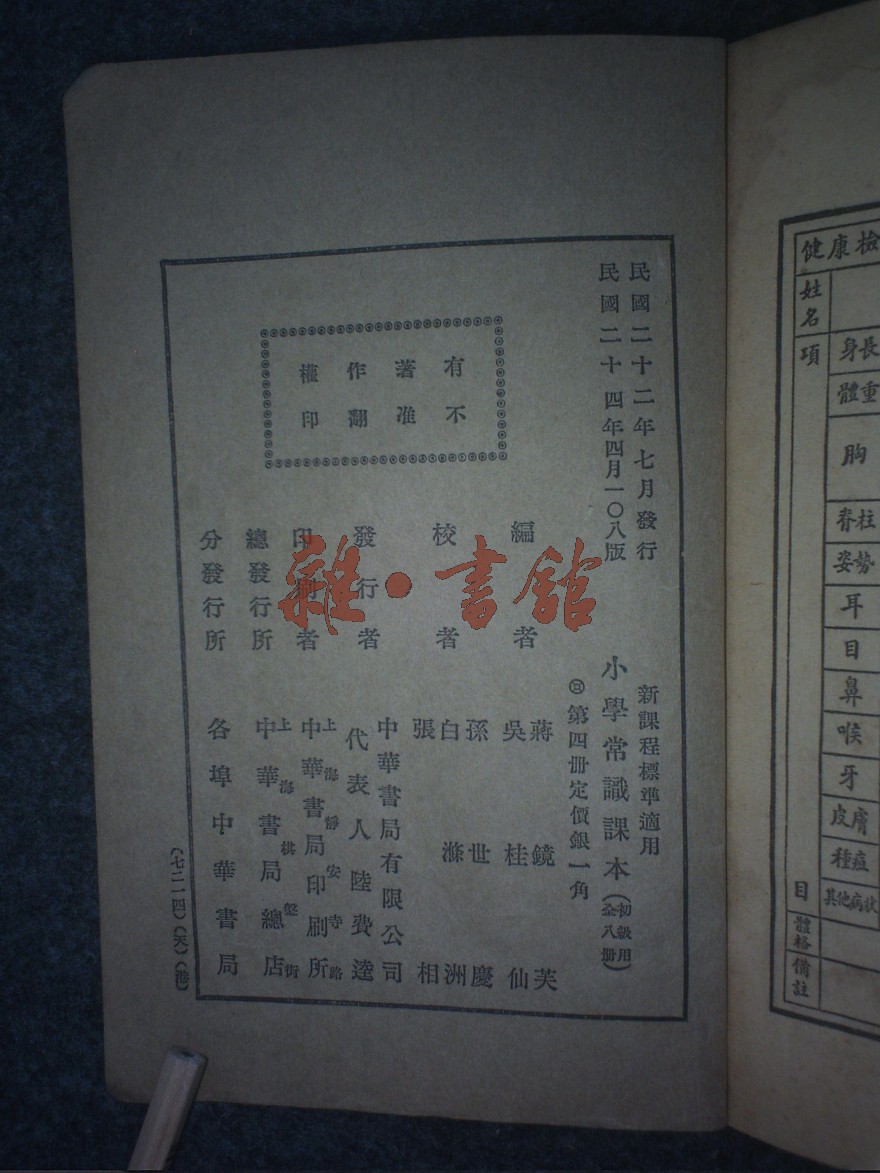 民國二十二年七月發行
民國二十四年四月一〇八版
有著作權
不准翻印
新課程標準適用
小學常識課本(初級用全八冊)
第四冊定價銀一角
編者
蔣鏡芙
吳桂仙
校者
孫世慶
白滌洲
張相
發行者
中華書局有限公司
代表人陸費逵
印刷者
上海靜安寺路
中華書局印刷所
總發行所
上海棋盤街
中華書局總店
分發行所
各埠中華書局
(七二一四)(天)(港)
雜·書館
健康檢
姓名
項目
身長
體重
胸
脊柱
姿勢
耳
目
鼻
喉
牙
皮膚
種痘
其他病狀
體格
備註